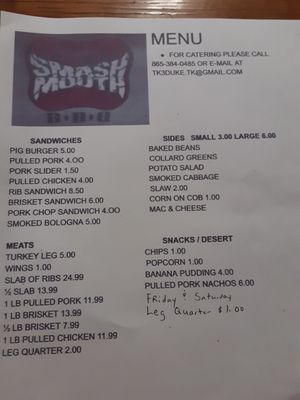 SMASH
MOUTH
B·B·Q
MENU
• FOR CATERING PLEASE CALL
865-384-0485 OR E-MAIL AT
TK3DUKE.TK@GMAIL.COM
SANDWICHES
PIG BURGER 5.00
PULLED PORK 4.00
PORK SLIDER 1.50
PULLED CHICKEN 4.00
RIB SANDWICH 8.50
BRISKET SANDWICH 6.00
PORK CHOP SANDWICH 4.00
SMOKED BOLOGNA 5.00
SIDES SMALL 3.00 LARGE 6.00
BAKED BEANS
COLLARD GREENS
POTATO SALAD
SMOKED CABBAGE
SLAW 2.00
CORN ON COB 1.00
MAC & CHEESE
MEATS
TURKEY LEG 5.00
WINGS 1.00
SLAB OF RIBS 24.99
½ SLAB 13.99
1 LB PULLED PORK 11.99
1 LB BRISKET 13.99
½ LB BRISKET 7.99
1 LB PULLED CHICKEN 11.99
LEG QUARTER 2.00
SNACKS / DESERT
CHIPS 1.00
POPCORN 1.00
BANANA PUDDING 4.00
PULLED PORK NACHOS 6.00
Friday & Saturday
Leg Quarter $1.00